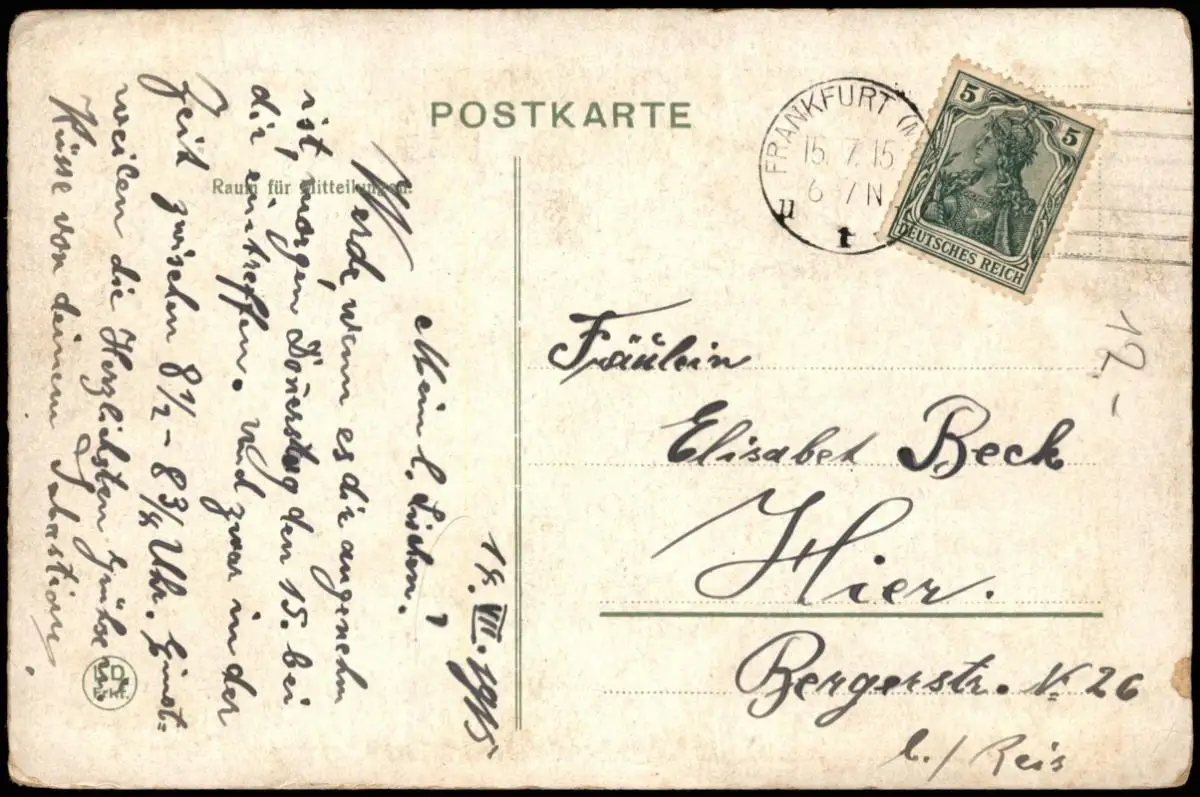 POSTKARTE
Raum für Mitteilungen.
FRANKFURT (M
15.7.15
6-7N
5
5
DEUTSCHES REICH
1915
Mein l.
Werde wenn es dir angenehm
ist, morgen Donerstag den 15. bei
dir eintreffen. Und zwar in der
Zeit zwischen 8½-8¾ Uhr. Einst-
weilen die Herzlichsten Grüße und
Küsse von deinem Sebastian.
Fräulein
Elisabet Beck
Hier.
Bergerstr. N. 26
b./ Reis
12-